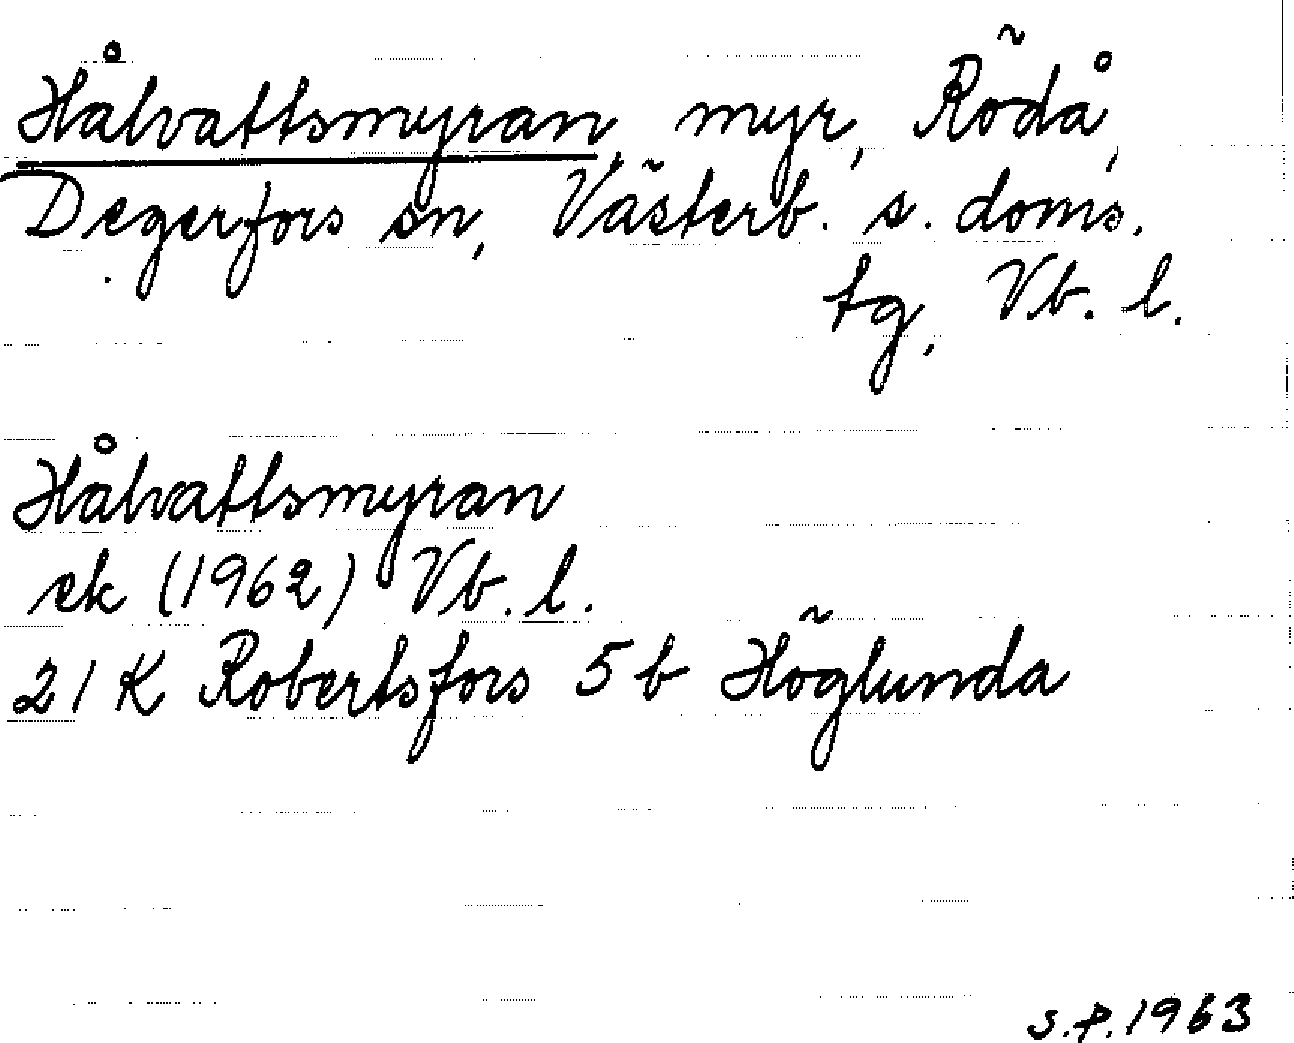 Hålvattsmyran, myr, Rödå,
Degerfors sn, Västerb. s. doms.
tg, Vb. l.
Hålvattsmyran
ek (1962) Vb. l.
21 K Robertsfors 5 b Höglunda
S.P. 1963